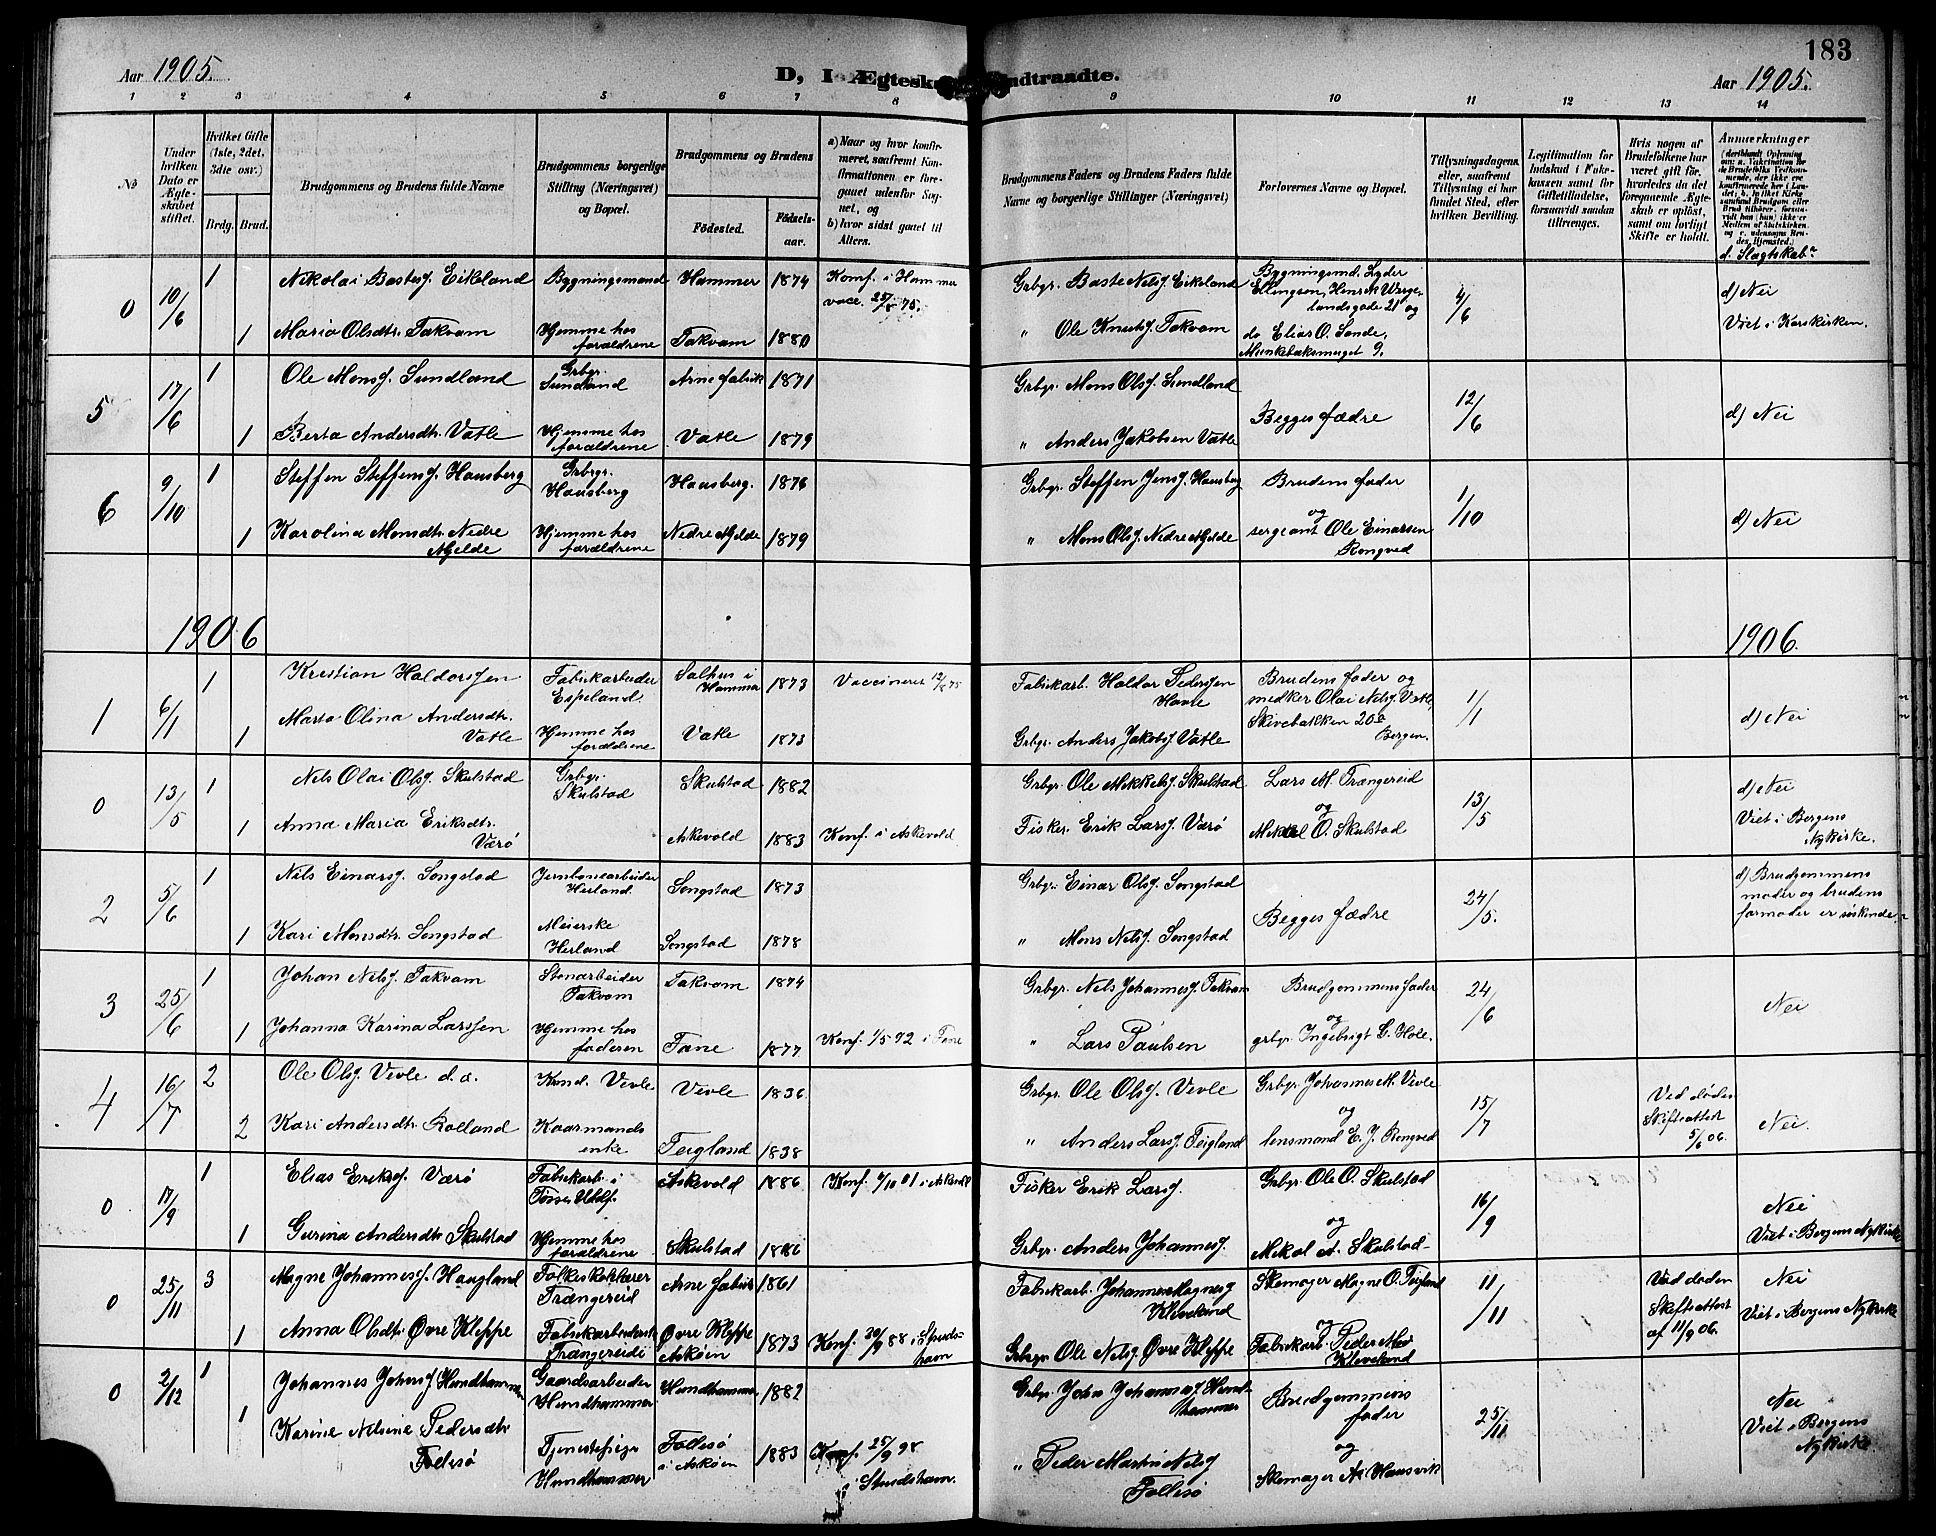 183
Aar 1905.
D, I Ægtesk
ndtraadte.
Aar 1905.
1 2 3 4 5 6 7 8 9 10 11 12 13 14
No
Under hvilken Dato er Ægteskabet stiftet.
Hvilket Gifte (1ste, 2det, 3die osv.)
Brdg. Brud.
Brudgommens og Brudens fulde Navne
Brudgommens borgerlige Stilling (Næringsvei) og Bopæl.
Brudgommens og Brudens
Fødested.
Fødselsaar.
a) Naar og hvor konfirmeret, saafremt Konfirmationen er foregaaet udenfor Sognet, og
b) hvor sidst gaaet til Alters.
Brudgommens Faders og Brudens Faders fulde Navne og borgerlige Stillinger (Næringsvei)
Forlovernes Navne og Bopæl.
Tillysningsdagene eller, saafremt Tillysning ei har fundet Sted, efter hvilken Bevilling.
Legitimation for Indskud i Enkekassen samt for Giftetilladelse, forsaavidt saadan tiltrænges.
Hvis nogen af Brudefolkene har været gift før, hvorledes da det foregaaende Ægteskab er opløst, samt om lovligt Skifte er holdt.
Anmerkninger
d. Slagtskab
0 10/6 1 Nikolai Bastesj. Eikeland Bygningsmand Hammer 1874 Konf. i Hammer vacc. 25/8 75. Grbgr. Baste Nelsj. Eikeland Bygningsmd. Lyder Ellingsen, Henrik Wergelandsgade 21 og 4/6 d) Nei
1 Maria Olsdtr. Takvam Hjemme hos forældrene Takvam 1880 " Ole Knutsj. Takvam do Elias O. Sande, Munkebæksmuget 9. Viet i Korskirken.
5 17/6 1 Ole Monsj. Sundland Grbgr. Sundland Arne fabrik 1871 Grbgr. Mons Olsj. Sundland Begges fædre 12/6 d) Nei
1 Berta Andersdtr. Vatle Hjemme hos forældrene Vatle 1879 " Anders Jakobsen Vatle
6 9/10 1 Steffen Steffensj. Hausberg Grbgr. Hausberg Hausberg. 1876 Grbgr. Steffen Jensj. Hausberg Brudens fader og 1/10 d) Nei
1 Karolina Monsdtr. Nedre Mjelde Hjemme hos forældrene Nedre Mjelde 1879 " Mons Olsj. Nedre Mjelde sergeant Ole Einarsen Rongved
1906 1906.
1 6/1 1 Kristian Haldorssen Fabrikarbeider Espeland Salhus i Hammer 1873 Vaccineret 12/8 75 Fabrikarb. Haldor Pederssen Havle Brudens fader og 1/1 d) Nei
1 Marta Olina Andersdtr. Vatle Hjemme hos forældrene Vatle 1873 Grbgr. Anders Jakobsj. Vatle snedker Olai Nelsj. Vatle, Skivebakken 20 Bergen.
0 13/5 1 Nils Olai Olsj. Skulstad Grbgr. Skulstad Skulstad 1882 Grbgr. Ole Mikkelsj. Skulstad Lars M. Trængereid og 13/5 d) Nei
1 Anna Maria Eriksdtr. Værø Askevold 1883 Konf. i Askevold Fisker Erik Larsj. Værø Mikkel O. Skulstad Viet i Bergens Nykirke.
2 5/6 1 Nils Einarsj. Songstad Jernbanearbeider Herland. Songstad 1873 Grbgr. Einar Olsj. Songstad Begges fædre 24/5. d) Brudgommens moder og brudens farmoder er søskinde
1 Kari Monsdtr. Songstad Meierske Herland Songstad 1878 " Mons Nelsj. Songstad
3 25/6 1 Johan Nilsj. Takvam Stenarbeider Takvam Takvam 1874 Grbgr. Nils Johannesj. Takvam Brudgommens fader og 24/6 Nei
1 Johanna Karina Larssen Hjemme hos faderen Fane 1877 Konf. 1/5 92 i Fane " Lars Paulsen grbgr. Ingebrigt L. Hole.
4 16/7 2 Ole Olsj. Vevle d.a. Kaad. Vevle Vevle 1836 Grbgr. Ole Olsj. Vevle Grbgr. Johannes M. Vevle og 15/7 Ved døden Skifteattest 5/6 06. Nei.
2 Kari Andersdtr. Rolland Kaarmands enke Teigland 1838 " Anders Larsj. Teigland lensmand E. J. Rongved
0 17/9 1 Elias Eriksj. Værø Fabrikarb. i Tøsse Uldf. Askevold 1886 Konf. 6/10 01 i Askevold Fisker Erik Larsj. Grbgr. Ole O. Skulstad og 16/9 Nei
1 Gurina Andersdtr. Skulstad Hjemme hos forældrene Skulstad 1886 Grbgr. Anders Johannesj. Mikal A. Skulstad Viet i Bergens Nykirke
0 25/11 3 Magne Johannesj. Haugland Folkeskolelærer Trængereid Arne fabrik 1861 Fabrikarb. Johannes Magnesj. Kleveland Skomager Magne O. Teigland og 11/11 Ved døden Skifteattest af 11/9 06. Nei
1 Anna Olsdtr. Øvre Kleppe Fabrikarbeiderske Trængereid Øvre Kleppe Askøen 1873 Konf. 30/9 88 i Strudshavn Grbgr. Ole Nelsj. Øvre Kleppe Fabrikarb. Peder Kleveland Viet i Bergens Nykirke
0 2/12 1 Johannes Johnsj. Hundhammer Gaardsarbeider Hundhammer Hundhammer 1882 Grbgr. John Johannesj. Hundhammer Brudgommens fader og 25/11 Nei
1 Karine Nelsine Pedersdtr. Follesø Tjenestepige Hundhammer Follesø i Askøen 1883 Konf. 25/9 98 i Strudshavn. " Peder Martin Nelsj. Follesø Skomager A. Hausvik Viet i Bergens Nykirke